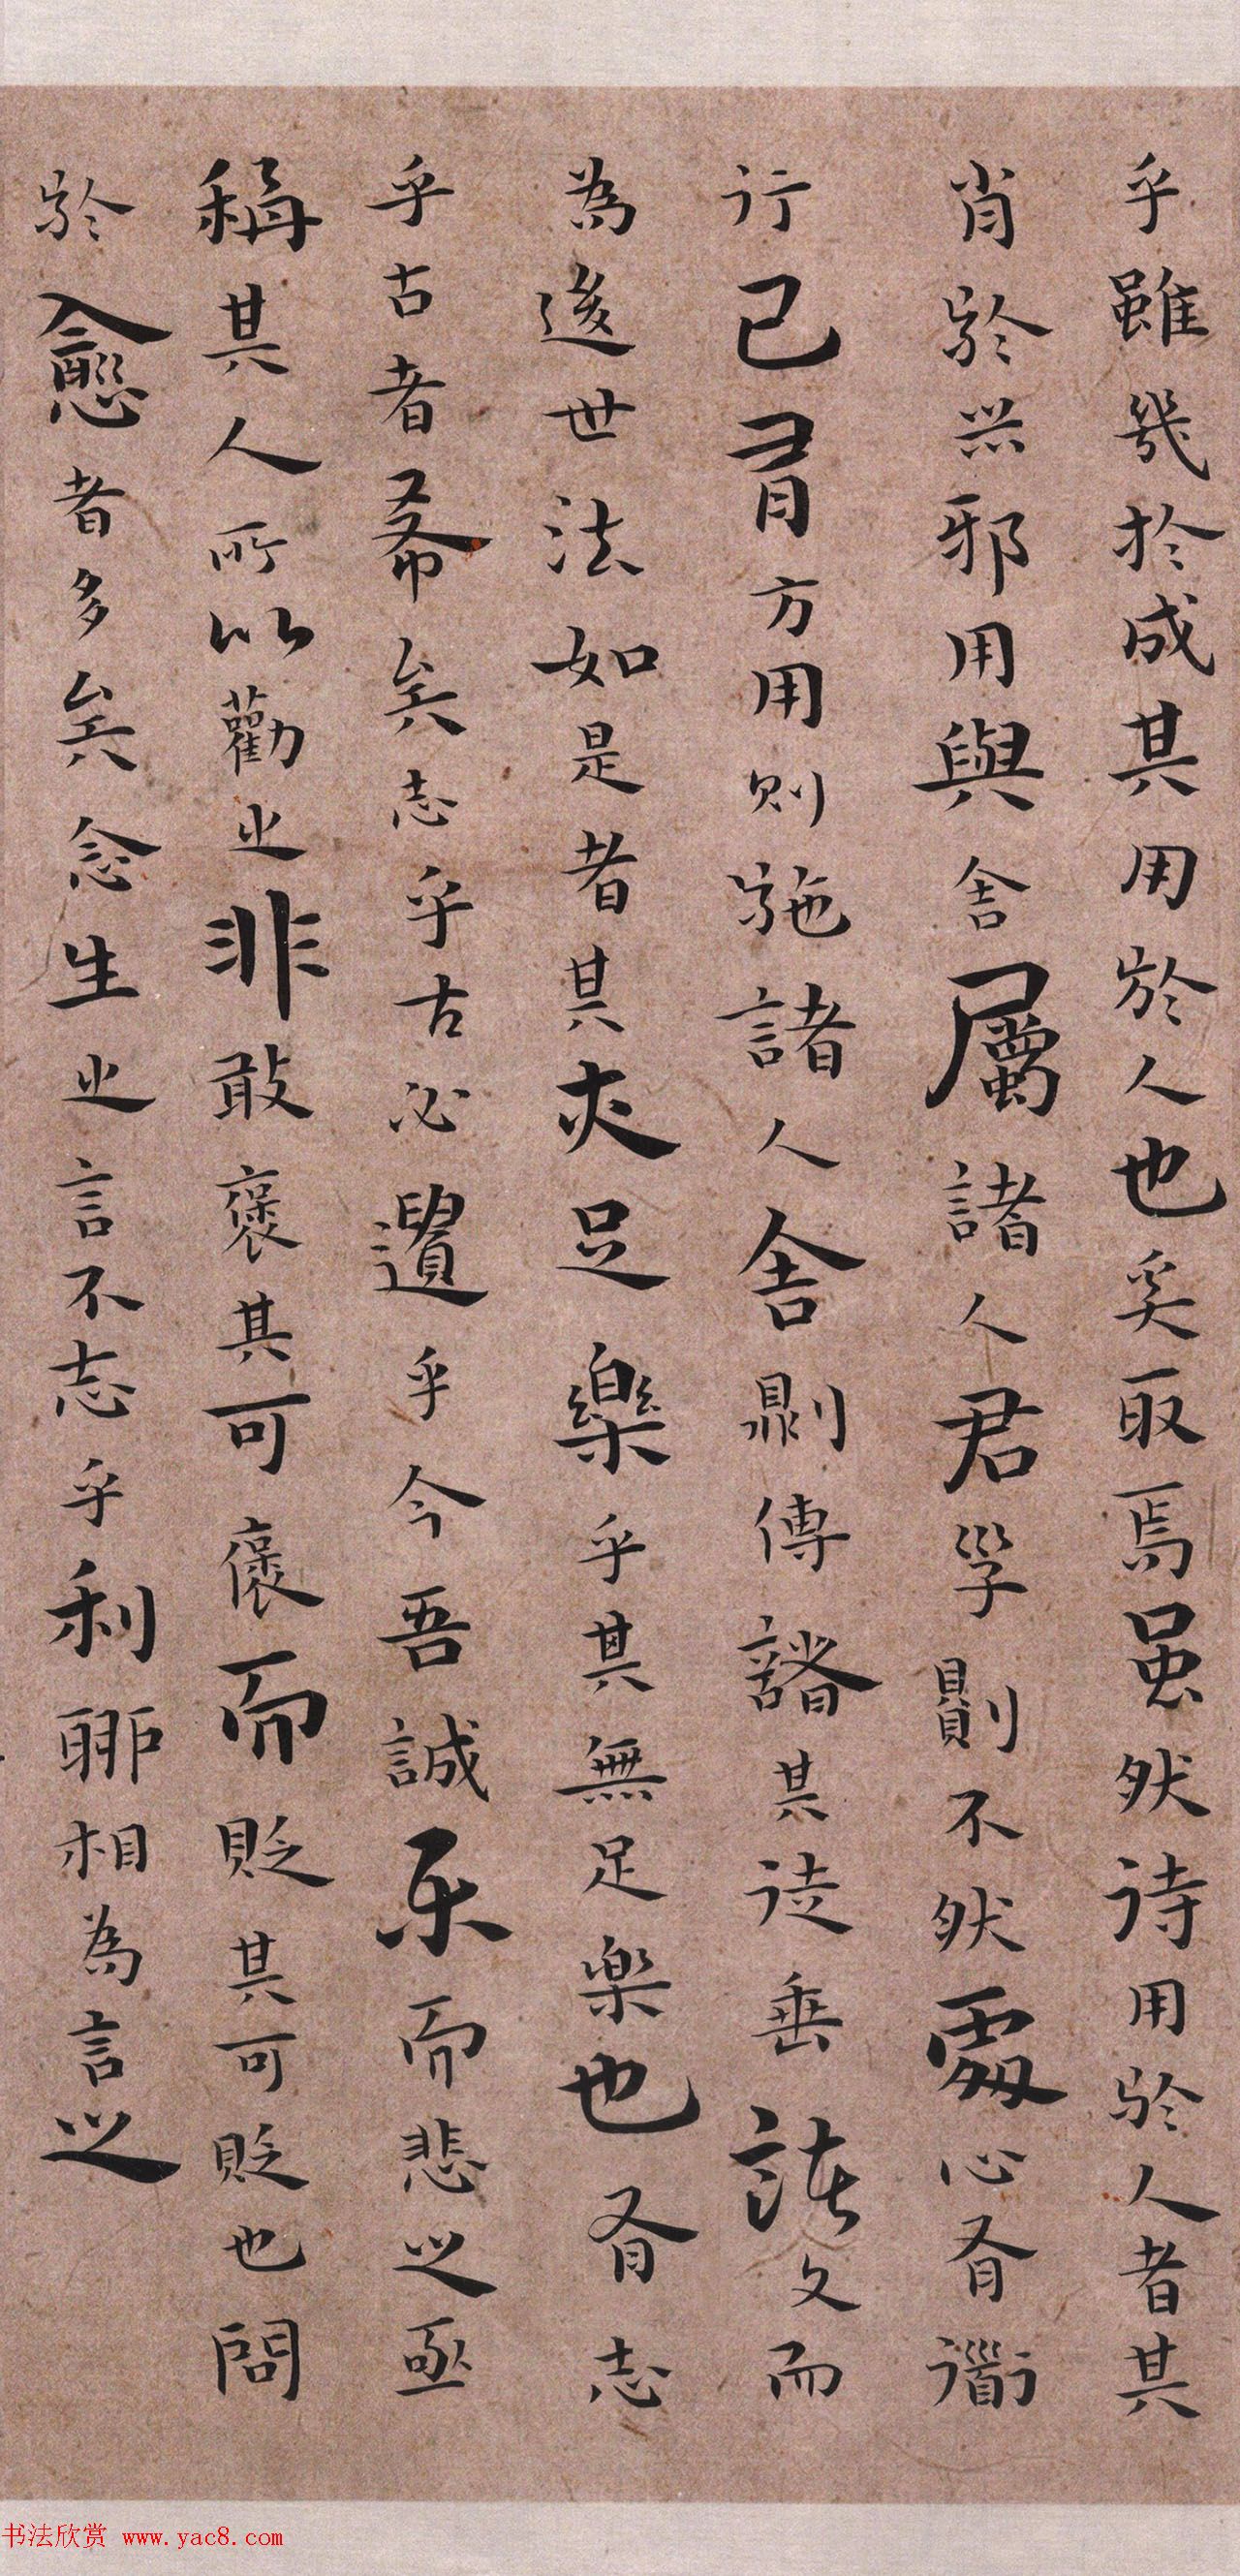 乎雖幾於成其用於人也奚取焉虽然待用於人者其
肖於器邪用與舍屬諸人君子則不然處心有道
行己有方用則施諸人舍則傳諸其徒垂諸文而
為後世法如是者其亦足樂乎其無足樂也有志
乎古者希矣志乎古必遺乎今吾誠乐而悲之亟
稱其人所以勸之非敢褒其可褒而貶其可貶也問
於愈者多矣念生之言不志乎利聊相為言之
书法欣赏 www.yac8.com